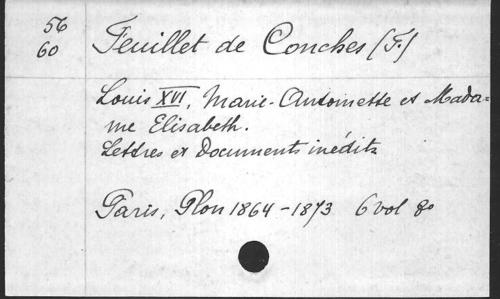 56
60
Feuillet de Conches (F.)
Louis XVI, Marie-Antoinette et Mada-
me Elisabeth.
Lettres et Documents inédits
Paris, Plon 1864-1873 6 vol 8o